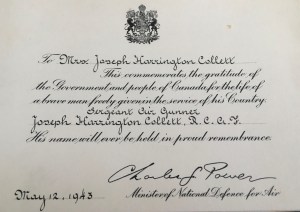 To Mrs. Joseph Harrington Collett
This commemorates the gratitude of
the Government and people of Canada for the life of
a brave man freely given in the service of his Country.
Sergeant Air Gunner
Joseph Harrington Collett, R.C.A.F.
His name will ever be held in proud remembrance.
Charles G Power
May 12, 1943
Minister of National Defence for Air